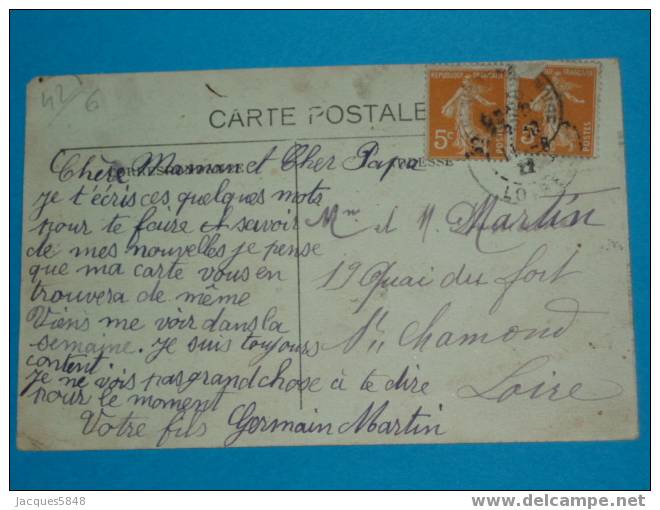 42
6
CARTE POSTALE
REPUBLIQUE FRANÇAISE
5c
POSTES
5c
POSTES
22
Chère Maman et Cher Papa
je t'écris ces quelques mots
pour te faire et savoir
de mes nouvelles je pense
que ma carte vous en
trouvera de même
Viens me voir dans la
semaine. Je suis toujours
content.
je ne vois pas grand chose à te dire
pour le moment
Votre fils Germain Martin
Mme et M. Martin
19 Quai du fort
St Chamond
Loire
Jacques5848
www.delcampe.net